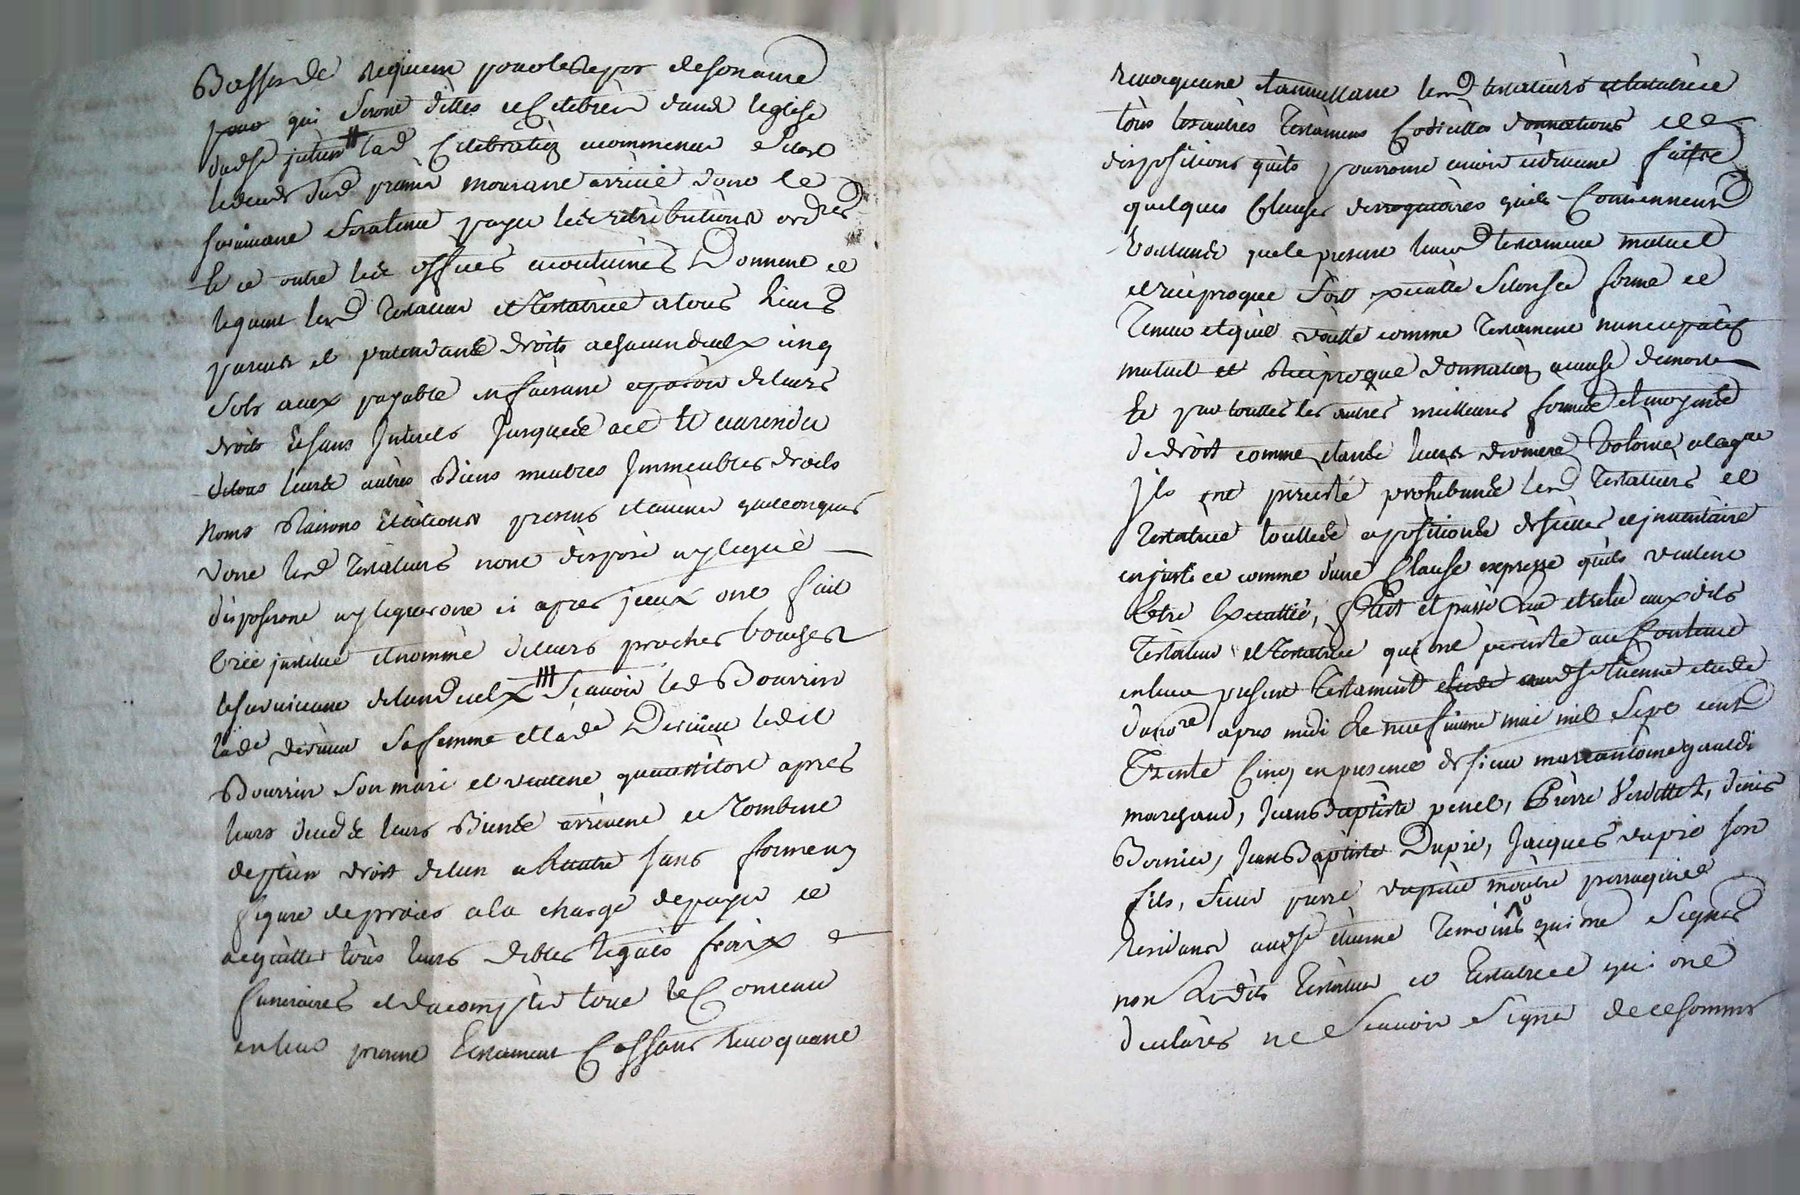 Basses de Requiem pour le Repos de son ame
pour qui seront dittes et Celebrées dans leglise
dud st julien lad Celebration a commencer des
le deces dud premier mourant arrivé dont le
survivant sera tenu payer les retributions ordres
Et ce outre les offices acoutumés Donnent et
leguent lesd Testateur et Testatrice a tous leurs
parents et pretendants droits a chacun deulx cinq
sols a eux payable en faisant aparoir de leurs
droits Et sans Interets jusques a ce Et au rendu
de tous leurs autres Biens meubles Immeubles droits
Noms Raisons et actions presens et avenir quelconques
dont lesd Testateurs nont disposé ny legué
disposeront ny legueront cy apres jceux ont fait
Créé jnstitué et nommé de leurs proches bouches
le survivant de lun deulx Scavoir led Bourrin
lade derieux sa femme et lade Derieux ledit
Bourrin son mari et veulent quaussitost apres
leurs deces leurs Biens arrivent et tombent
de plein droit de lun a lautre sans forme ny
figure de procès a la charge de payer et
acquitter tous leurs debtes legats fraix
funeraires et dacomplir tout le Contenu
en leur present Testament Cassant Revoquant
Revoquant et annullant lesd testateurs et testatrice
tous les autres Testamens Codicilles donnations et
dispositions quils pourroient avoir cy devant faitte
quelques Clauses derrogatoires quils Contiennent
Voulants que le present leur testament mutuel
et reciproque soit executté selon sa forme et
Teneur et quil vaille comme Testament nuncupatif
mutuel et Reciproque donnation a cause de mort
Et par touttes les autres meilleures formes et moyens
de droit comme etant leurs derniere Volonté a laquelle
jls ont persisté prohibants lesd Testateurs et
Testatrice touttes apositions de scelles et jnventaire
en justice comme dune Clause expresse quils veulent
Etre Executtée, fait et passé Lu et relu aux dits
Testateur et Testatrice qui ont persisté au Contenu
en leur present Testament aud st Etienne etude
du nore apres midi Le neufieme mai mil Sept cent
Trente Cinq en presence de sieur marcantoine
marchand, Jean Baptiste penel, Pierre Verdellet, denis
Bernier, Jean Baptiste Dupré, Jacques dupré son
fils, sieur pierre dupuÿ maitre perruquier
residants aud st etienne Temoins qui ont Signés
non Lesdits Testateur et Testatrice qui ont
declarés ne Scavoir Signer de ce sommés